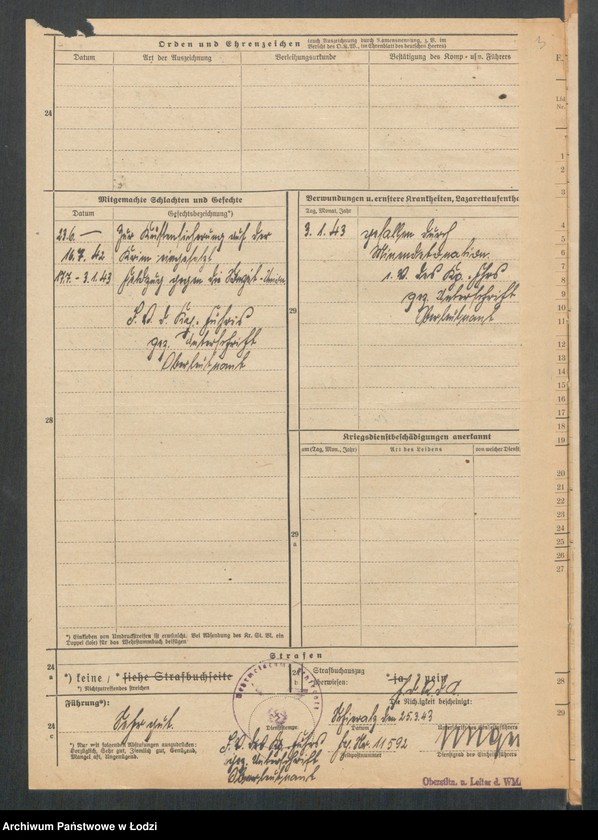 Orden und Ehrenzeichen
Datum Art der Auszeichnung Verleihungsurkunde Bestätigung des Komp.- usw. Führers
24
Mitgemachte Schlachten und Gefechte
Datum Gefechtsbezeichnung*)
23.6. — Zur Küstensicherung auf der
16.7.42 Krim eingesetzt
17.7. - 3.1.43 Feldzug gegen die Sowjet-Union
gez. Unterschrift
Oberleutnant
28
Verwundungen u. ernstere Krankheiten, Lazarettaufenthe
Tag, Monat, Jahr
3. 1. 43 gefallen durch
Minendetonation.
gez. Unterschrift
Oberleutnant
29
Kriegsdienstbeschädigungen anerkannt
am (Tag, Mon., Jahr) Art des Leidens von welcher Dienst
29
a
*) Einkleben von Umdruckstreifen ist erwünscht. Bei Absendung des Kr. St. Bl. ein
Doppel (lose) für das Wehrstammbuch beifügen
Strafen
24
a
*) keine / *) siehe Strafbuchseite
*) Nichtzutreffendes streichen
24
b
Strafbuchauszug
überwiesen: *) ja / nein
Führung*):
Sehr gut.
24
c
*) Nur mit folgenden Abstufungen auszudrücken:
Vorzüglich, Sehr gut, Ziemlich gut, Genügend,
Mangelhaft, Ungenügend.
Dienststempel
gez. Unterschrift
Oberleutnant
Die Richtigkeit bescheinigt:
Schieratz den 25.3.43
Datum
Fp. Nr. 11592
Feldpostnummer
Dienstgrad des Einheitsführers
Oberstltn. u. Leiter d. WMA
E.
Lfd
Nr.
1
2
3
4
5
6
7
8
9
10
11
12
13
14
15
16
17
18
19
20
21
22
23
24
25
26
27
28
29
3
Archiwum Państwowe w Łodzi